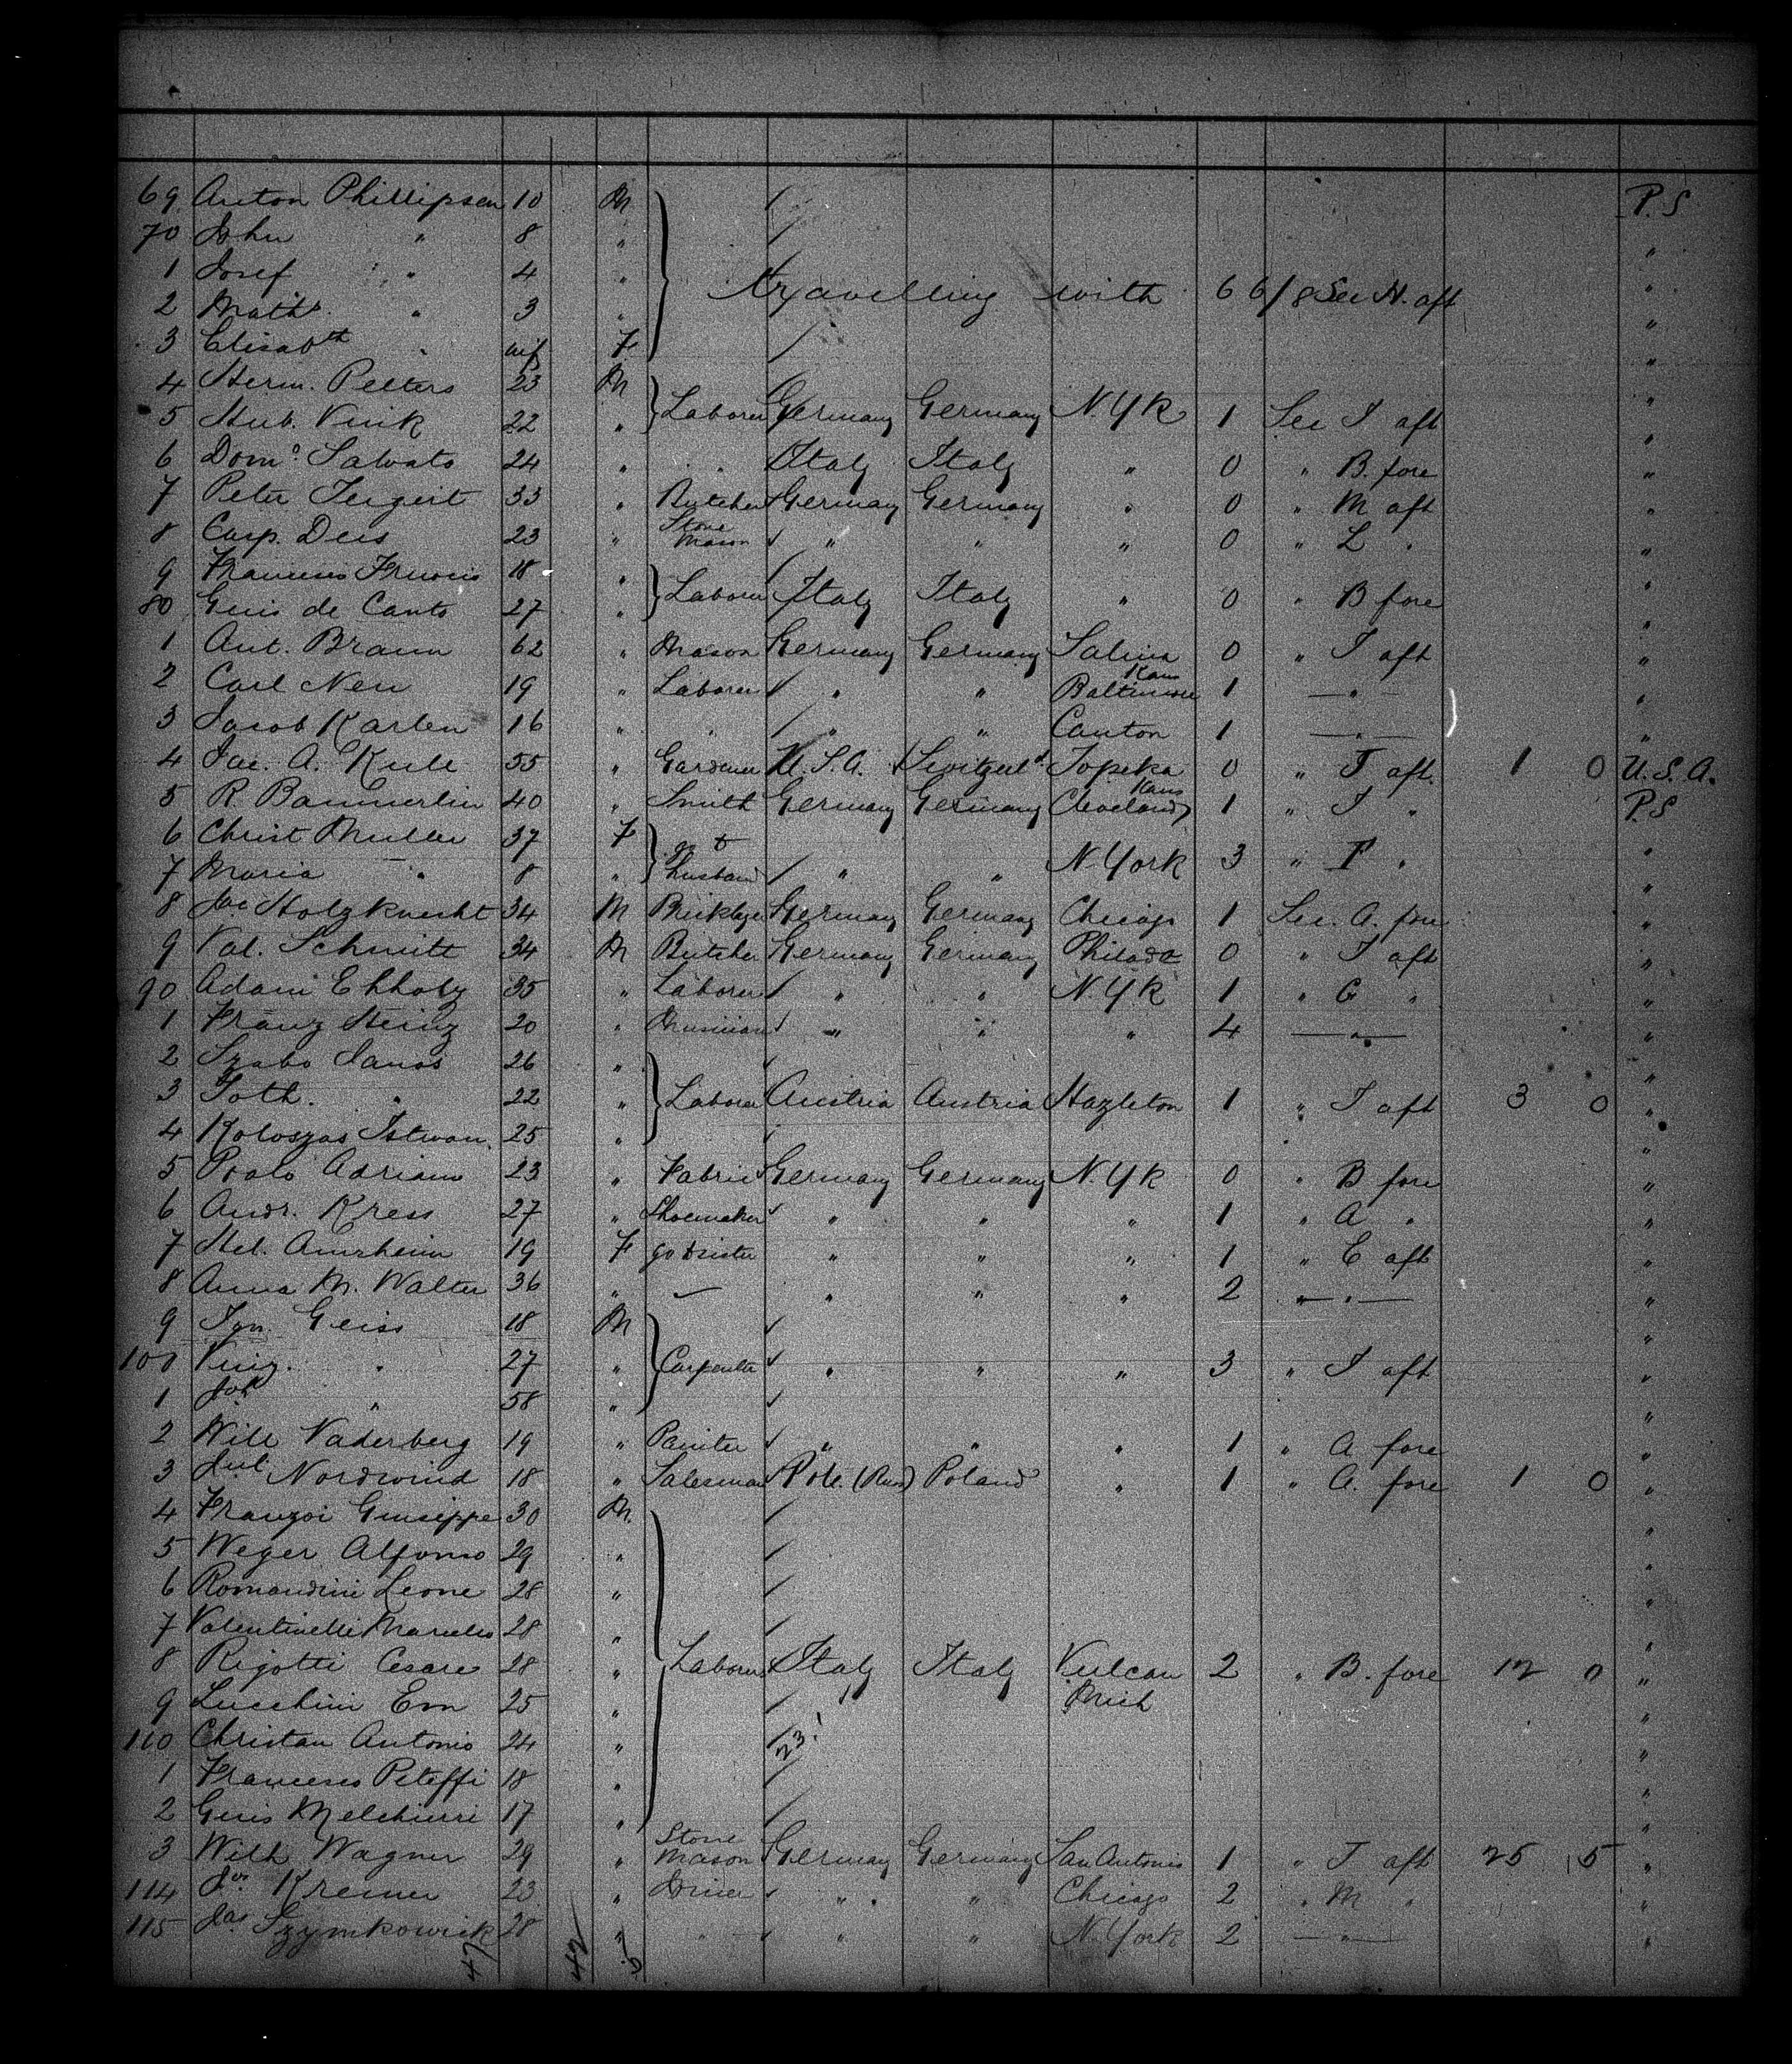 69 Anton Phillipsen 10 M P.S
70 John " 8 " "
1 Josef " 4 " "
travelling with 66/8 See N. aft
2 Math " 3 " "
3 Elisabth " inf F "
4 Herm. Pelters 23 M "
5 Hub. Vink 22 " Laborer Germany Germany N.Yk 1 See J aft "
6 Domo. Salvato 24 " " Italy Italy " 0 " B. fore "
7 Peter 33 " Butcher Germany Germany " 0 " M aft "
8 Casp. Deis 23 " Stone Mason " " " 0 " L " "
9 18 " "
80 Guis de Canto 27 " Laborer Italy Italy " 0 " B fore "
1 Ant. Braun 62 " Mason Germany Germany Salina Kans 0 " J aft "
2 Carl Neu 19 " Laborer " " Baltimore 1 — " — "
3 Jacob Karlen 16 " " " " Canton 1 — " — "
4 Jac. A. 55 " Gardener U.S.A. Switzerld. Topeka Kans 0 " J aft 1 0 U.S.A.
5 R 40 " Smith Germany Germany Cleveland 1 " J " P.S
6 Christ Muller 37 F "
7 Maria " 8 " go to husband " " N. York 3 " F " "
8 Jac Holzknecht 34 M Bricklayer Germany Germany Chicago 1 See. A. fore "
9 Val. Schmitt 34 M Butcher Germany Germany Philada 0 " J aft "
90 Adam 35 " Laborer " " N.Yk 1 " G " "
1 Franz Heinz 20 " Musician " " " 4 — " — "
2 Szabo Janos 26 " "
3 Toth. " 22 " Laborer Austria Austria Hazleton 1 " J aft 3 0 "
4 Koloszas Istwan 25 " "
5 Paolo Adriano 23 " Germany Germany N.Yk 0 " B fore "
6 Andr. Kress 27 " Shoemaker " " " 1 " A " "
7 Hel. 19 F go to sister " " " 1 " C aft "
8 Anna M. Walter 36 " — " " " 2 " — " — "
9 Ign. Geiss 18 M "
100 " 27 " Carpenter " " " 3 " J aft "
1 Joh " 58 " "
2 Will Vaderberg 19 " Painter " " " 1 " A fore "
3 Jul Nordwind 18 " Salesman Pole. (Rus) Poland " 1 " A. fore 1 0 "
4 Franzoi Giuseppe 30 M. "
5 Weger Alfonso 29 " "
6 Romandini Leone 28 " "
7 Valentinelli 28 " "
8 Rigotti Cesare 28 " Laborer Italy Italy Vulcan Mich 2 " B. fore 12 0 "
9 Lucchini Em 25 " "
110 Christan Antonio 24 " 23! "
1 Francesco Peteffi 18 " "
2 Guis Melchiorri 17 " "
3 Wilh Wagner 29 " Stone Mason Germany Germany San Antonio 1 " J aft 25 5 "
114 Jos Kremer 23 " " " Chicago 2 " M " "
115 Jas Szymkowick 28 " " " " N. York 2 — " — "
47 42 5